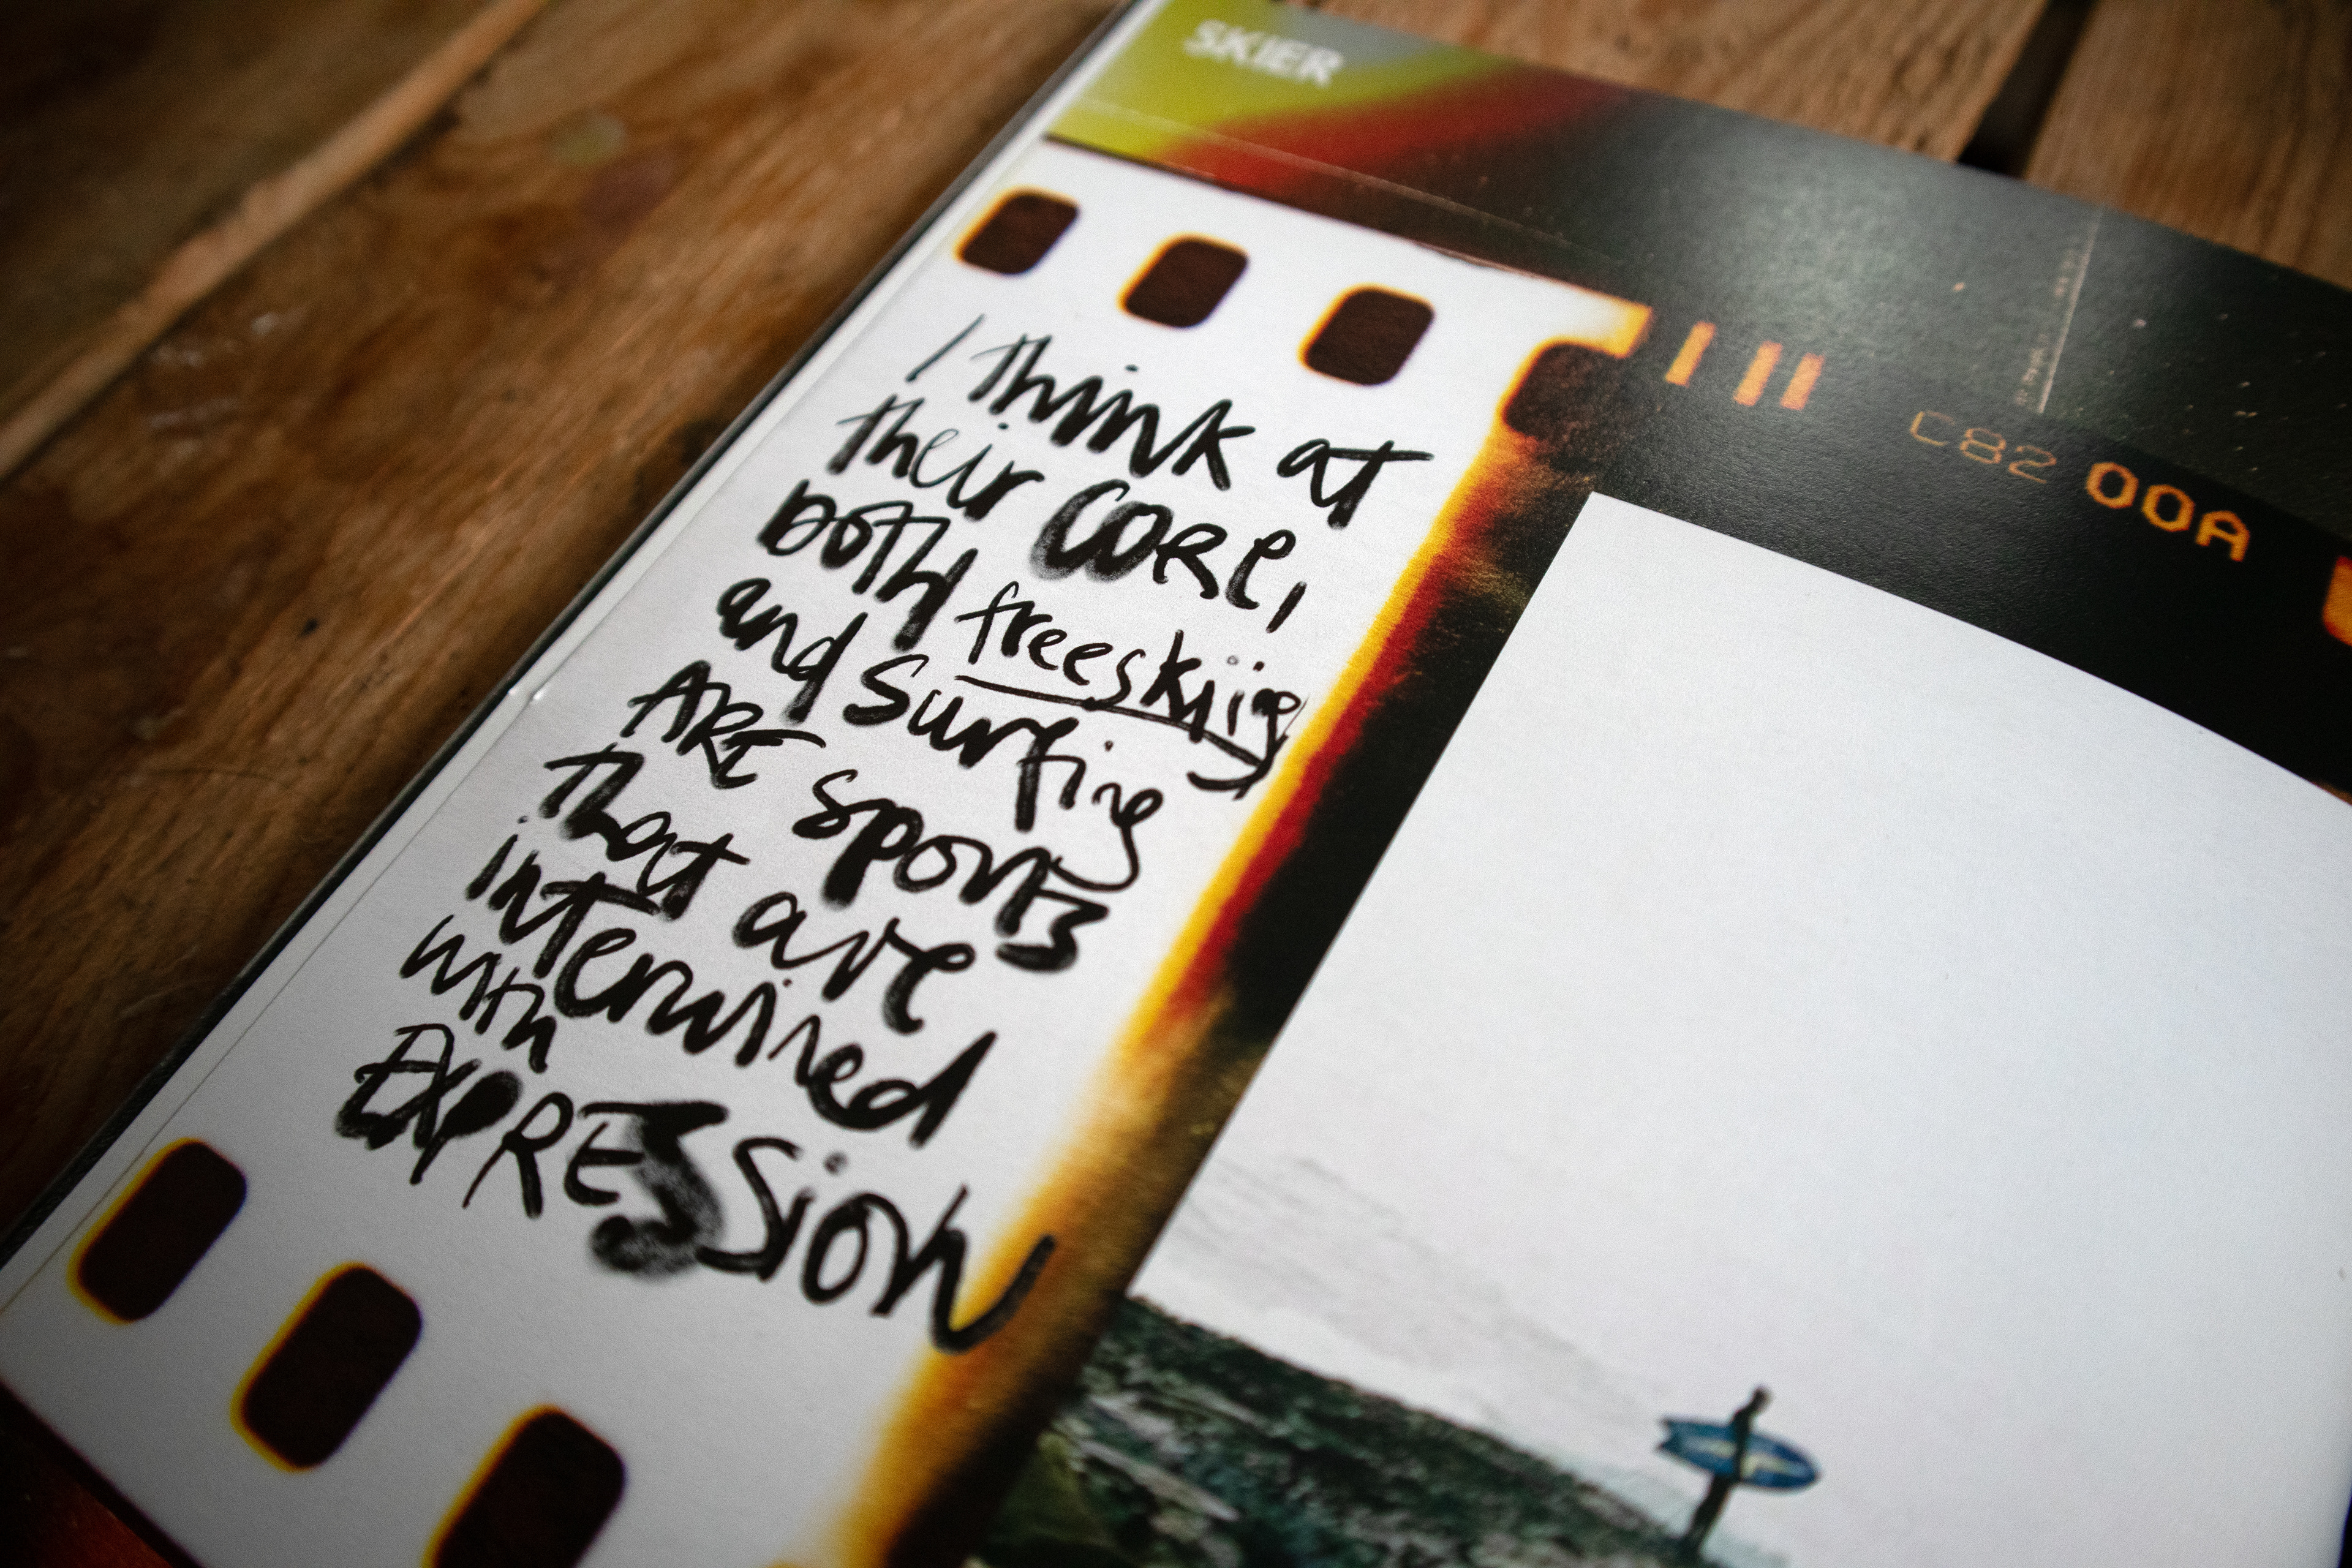 SKIER
I think at
their CORE,
BOTH freeskiing
and surfing
ARE sports
that are
interwined
with
EXPRESSION
C82 00A